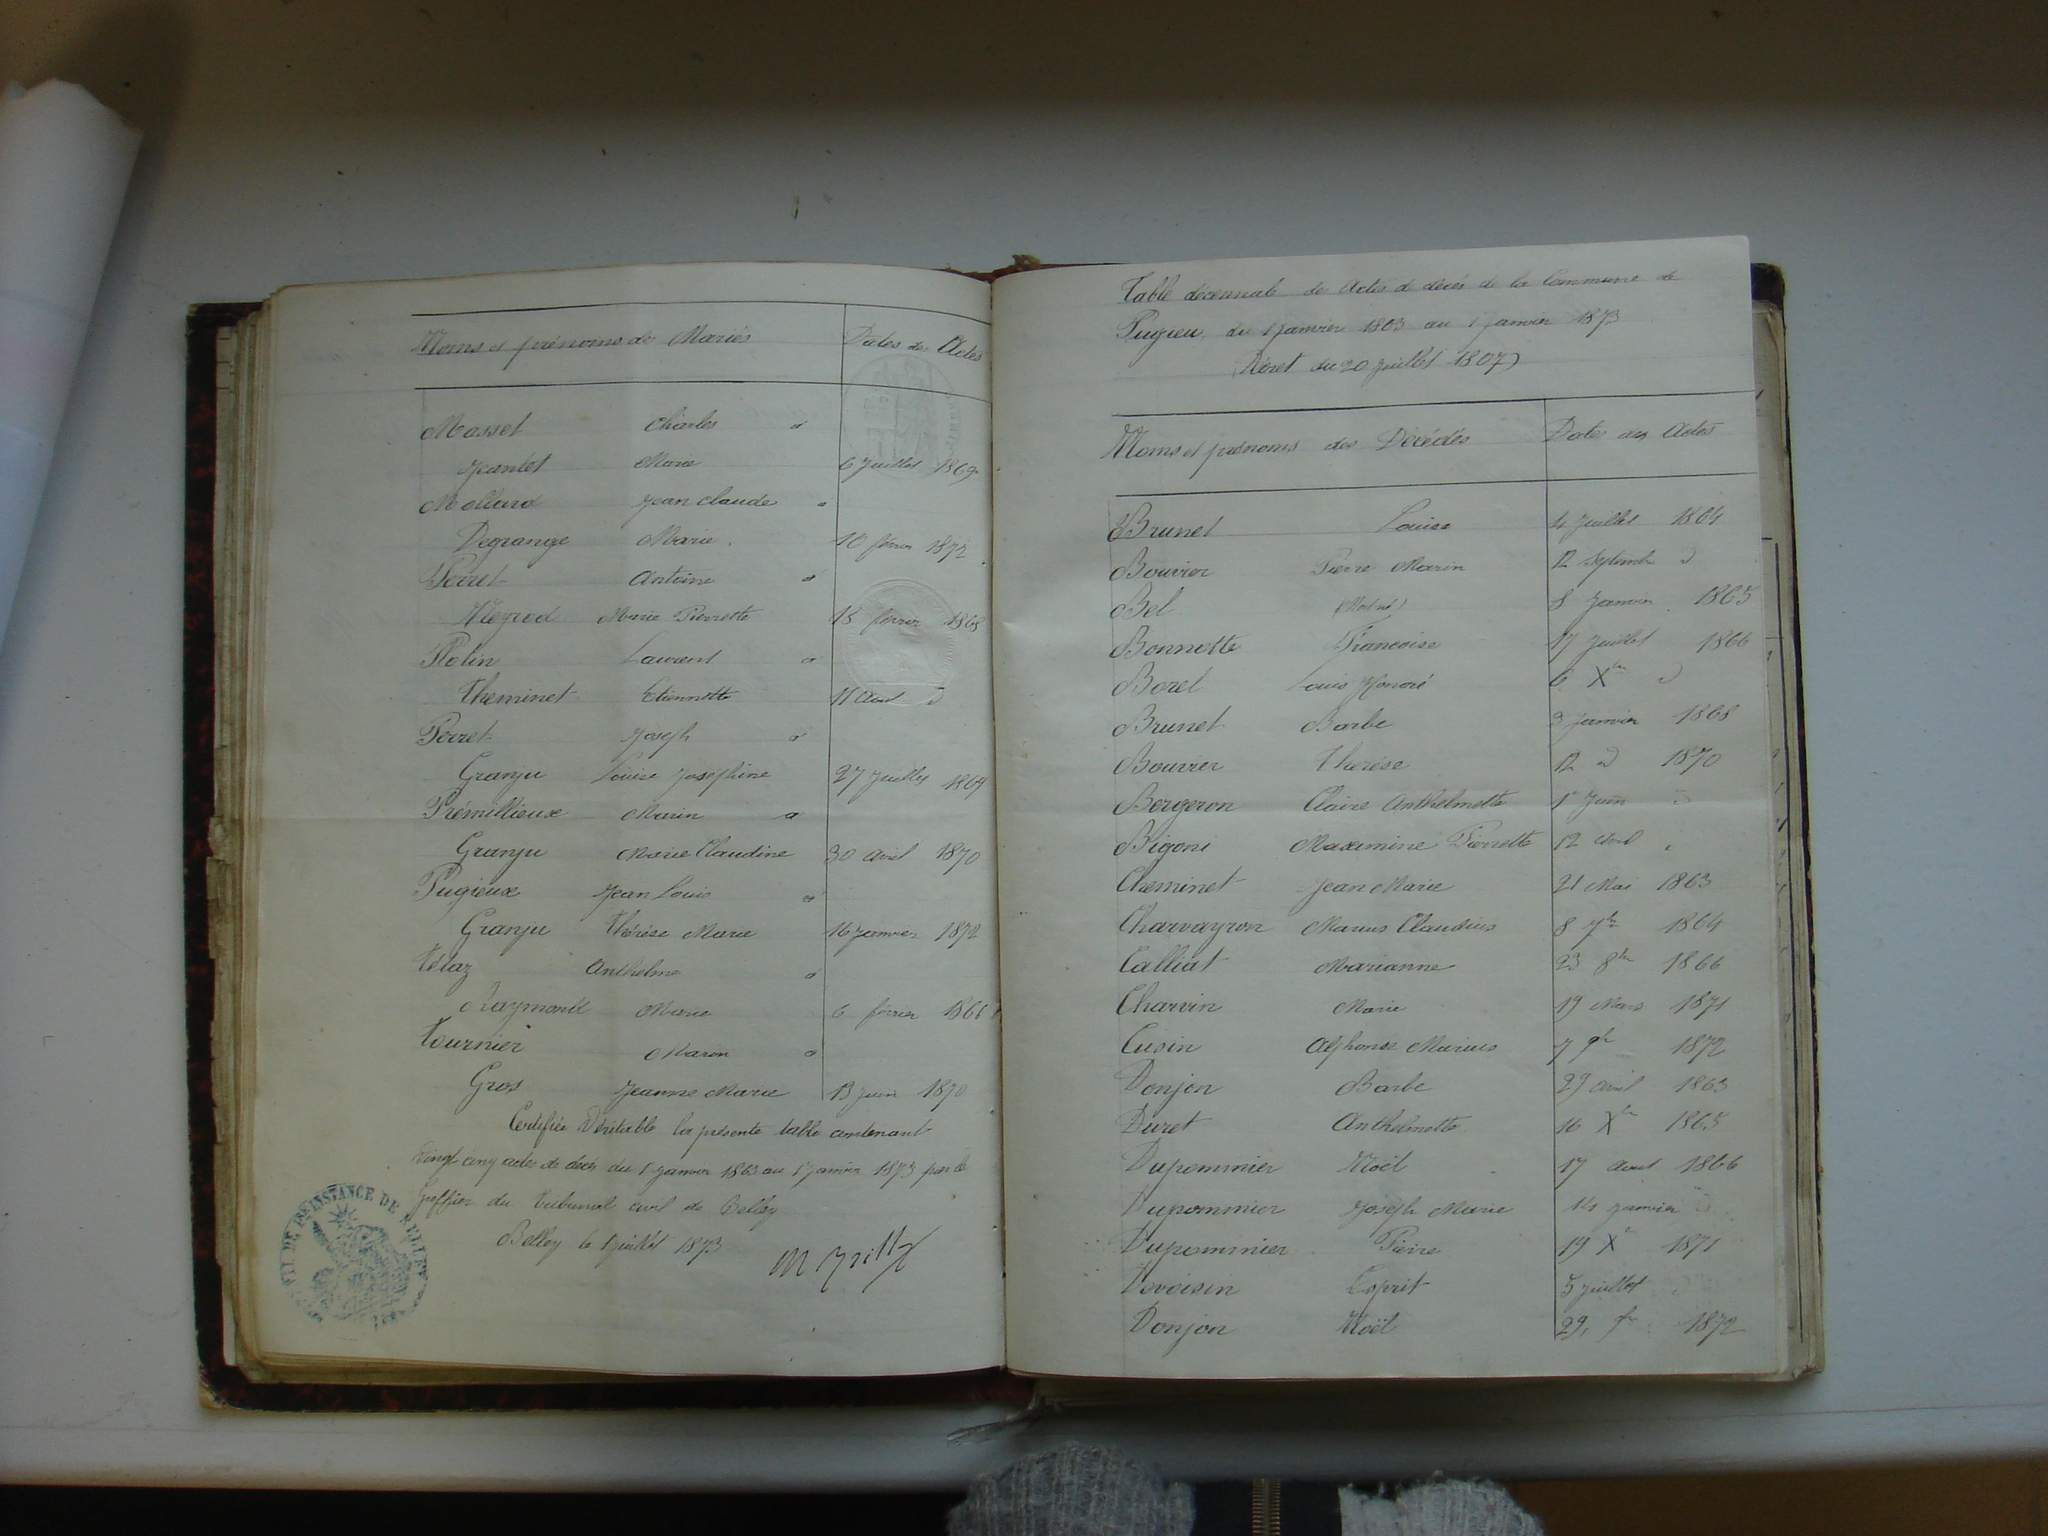 Noms et prénoms des Mariés Dates des Actes
Masset Charles à
Jeantet Marie 6 Juillet 1869
Mollard Jean Claude à
Degrange Marie 10 février 1872
Perret Antoine à
Meyrod Marie Pierrette 18 février 1868
Rolin Laurent à
Cheminet Etiennette 11 Aout d
Perret Joseph à
Granju Louise Joséphine 27 Juillet 1864
Prémillieux Marin à
Granju Marie Claudine 30 avril 1870
Pugieux Jean Louis à
Granju Thérèse Marie 16 Janvier 1872
Tétaz Anthelme à
Raymond Marie 6 février 1866
Tournier Marin à
Gros Jeanne Marie 13 Juin 1870
Certifiée Véritable la présente table contenant
Vingt cinq actes de décès du 1 janvier 1863 au 1 janvier 1873 par le
Greffier du Tribunal civil de Belley
Belley le 1 juillet 1873
INSTANCE DE BELLEY
Table décennale de Actes de décès de la Commune de
Pugieu, du 1 janvier 1863 au 1 janvier 1873
(Décret du 20 Juillet 1807)
Noms et prénoms des Décédés Date des Actes
Brunet Louise 4 Juillet 1864
Bouvier Pierre Marin 12 Septembre d
Bel (Mort né) 8 Janvier 1865
Bonnette Françoise 17 Juillet 1866
Borel Louis Honoré 6 Xbre d
Brunet Barbe 3 janvier 1868
Bouvier Thérèse 12 d 1870
Bergeron Claire Anthelmette 1er Juin d
Bigoni Maximine Pierrette 12 avril
Cheminet Jean Marie 21 Mai 1863
Charvayron Marius Claudius 8 7bre 1864
Calliat Marianne 23 8bre 1866
Charvin Marie 19 Mars 1871
Cusin Alphonse Marius 7 9b 1872
Donjon Barbe 29 avril 1863
Duret Anthelmette 16 Xbre 1865
Dupommier Noël 17 aout 1866
Dupommier Joseph Marie 14 janvier d
Dupommier Pierre 19 Xb 1871
Devoisin Esprit 5 juillet d
Donjon Noël 29 1872